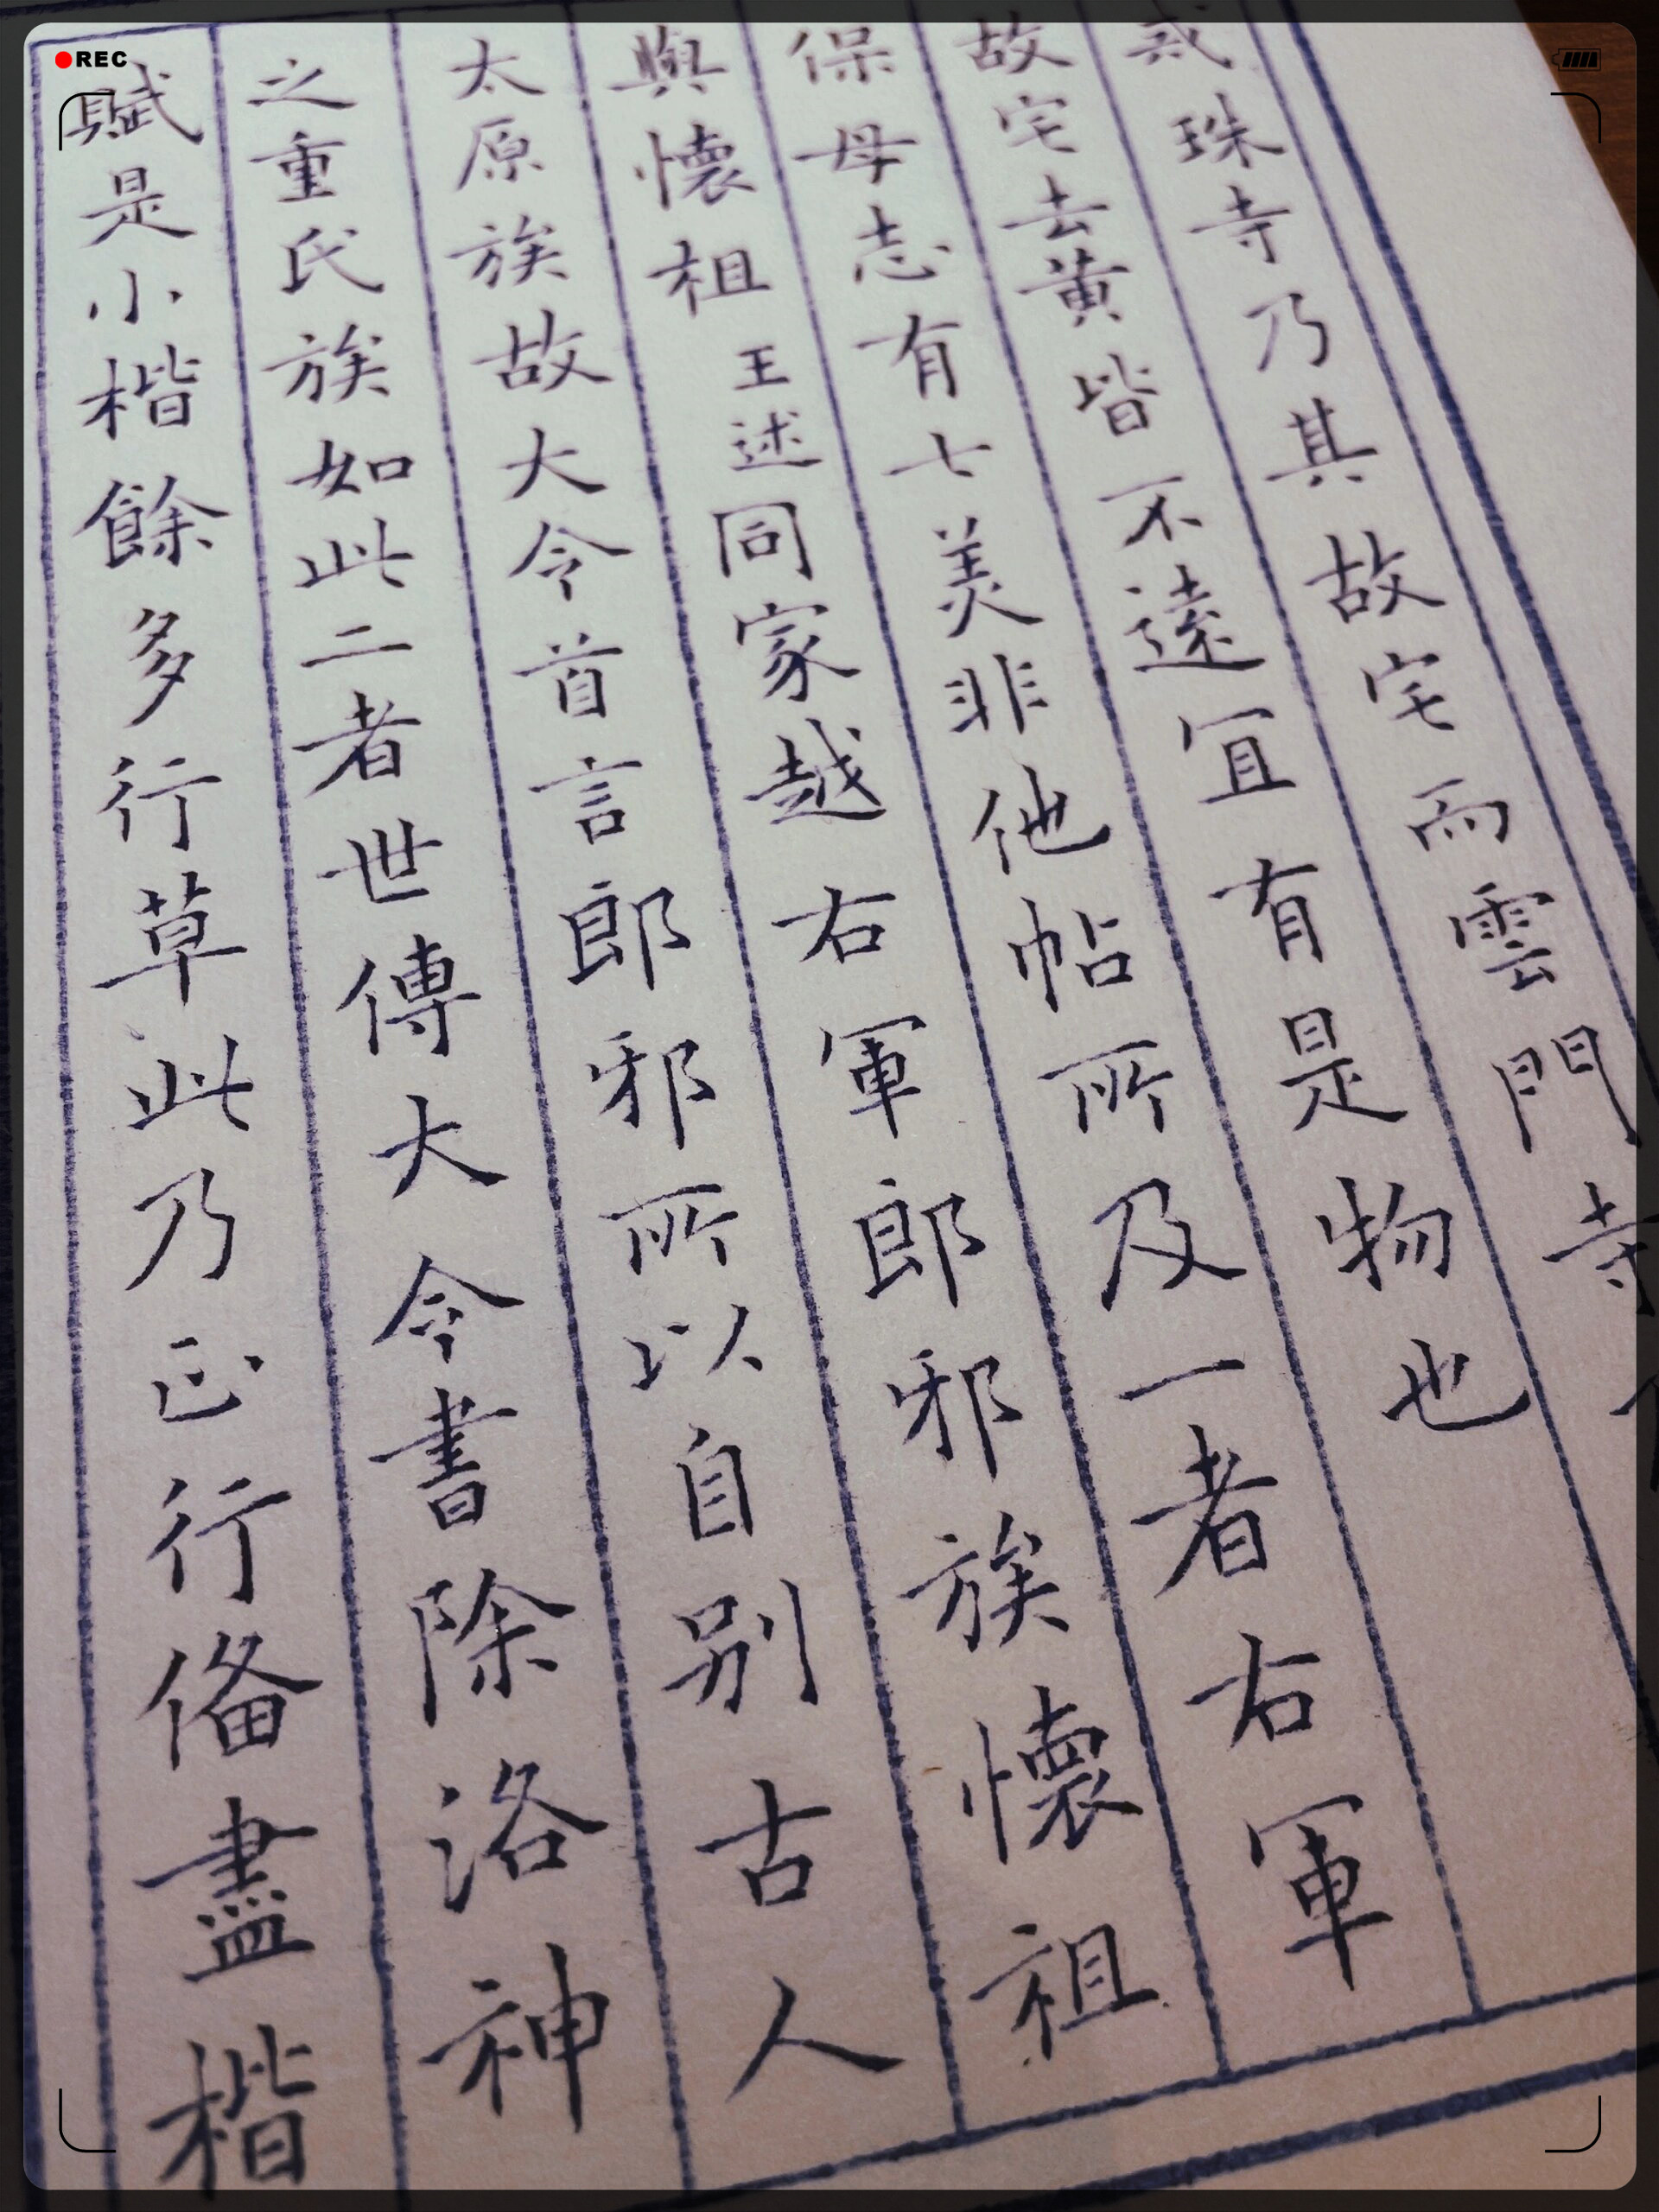 REC
戒珠寺乃其故宅而雲門寺
故宅去黄皆不遠宜有是物也
保母志有七美非他帖所及一者右軍
與懷祖王述同家越右軍郎邪族懷祖
太原族故大令首言郎邪所以自别古人
之重氏族如此二者世傳大令書除洛神
賦是小楷餘多行草此乃正行俻盡楷